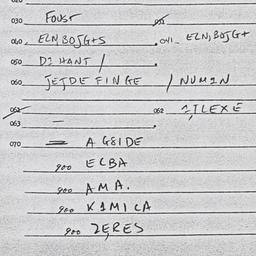 030 Foust 031
040 EZN,BOJG+S 041 EZN,BOJG+
050 DI HANT /
060 JETDE FINGE / NUMIN
062 062 ITLEXE
063 —
070 = AG8IDE
900 ECBA
900 AMA.
900 KIMICA
900 ZERES